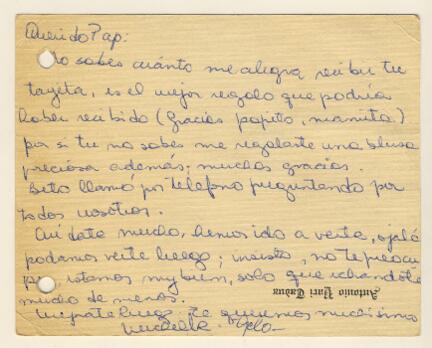 Querido Pap:
No sabes cuánto me alegra recibir tu
tarjeta, es el mejor regalo que podría
haber recibido (Gracias papito, mamita)
por si tu no sabes me regalaste una blusa
preciosa además; muchas gracias.
Beto llamó por teléfono preguntando por
todos nosotros.
Cuidate mucho, hemos ido a verte, ojalá
podamos verte luego; insisto, no te preocu
pes, estamos muy bien, solo que echandote
mucho de menos.
luego. te queremos muchísimo
Antonio Yari